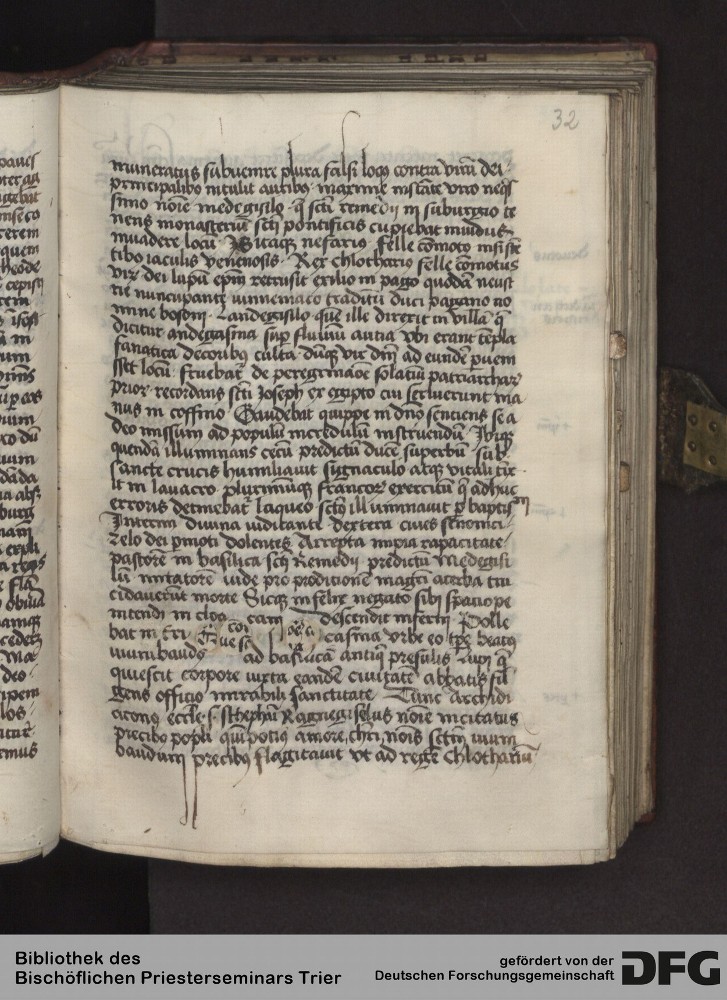 32
muneratus subuenire plura falsi loqȝ contra virū dei
principalibȝ intulit auribȝ maxime instāte viro neqͥs
simo noīe medegisilo q̄ scti remedii in suburgio te
nens monasteriū scti pontificis cupiebat inuidus
inuadere locū Sicqȝ nefario felle cōmoto insiste
tibȝ iaculis venenosis Rex chlotharius felle cōmotus
virū dei lupū epm̄ retrusit exilio in pago quodā neust
rie nuncupante vinnemaco traditū duci pagano no
mine bosoni Landegisilo quē ille direxit in villā q̄
dicitur andegasina sup̄ fluuiū autia vbi erant tēpla
fanatica decoribȝ culta dūqȝ vir dni ad eundē puem
sset locū fruebat̄ de peregrinacōe solatiū patriarchaꝝ
prior recordans scti Joseph ex egipto cui seruierunt ma
nus in coffino Gaudebat quippe in dno senciens se a
deo missum ad populū incredulū instruendū Ibiqȝ
quendā illuminans cecū predictū ducē superbū sub
sancte crucis humiliauit sygnaculo atqȝ vitali tīx
it in lauacro plurimūqȝ francoꝝ exercitū q̄ adhuc
erroris detinebat̄ laqueo sctȝ illuminauit p baptismū
Interim diuina iuditante dextera ciues senonici
zelo dei pmoti dolentes Accepta impia rapacitate
pastorē in basilica scti Remedii predictū medegisi
lū imitatorē iude pro proditione magri acerba tru
cidauerūt morte Sicqȝ infelix negato sibi spatio pe
nitendi in cloacam descendit inferni Polle
bat in casina vrbe eo tpe beatȝ
uuinibaudȝ ad basilicā antiq̄ presulis Lupi q̄
quiescit corpore iuxta eandē ciuitatē abbatis fū
gens officio mirabili sanctitate Tunc Archidi
aconȝ eccle s sthephani Ragnegiselus noīe incitatus
precibȝ popli quī potius amore chri noīs sctm uuini
baudum precibȝ flagitauit vt ad regē Chlothariū
Bibliothek des
Bischöflichen Priesterseminars Trier
gefördert von der
Deutschen Forschungsgemeinschaft
DFG